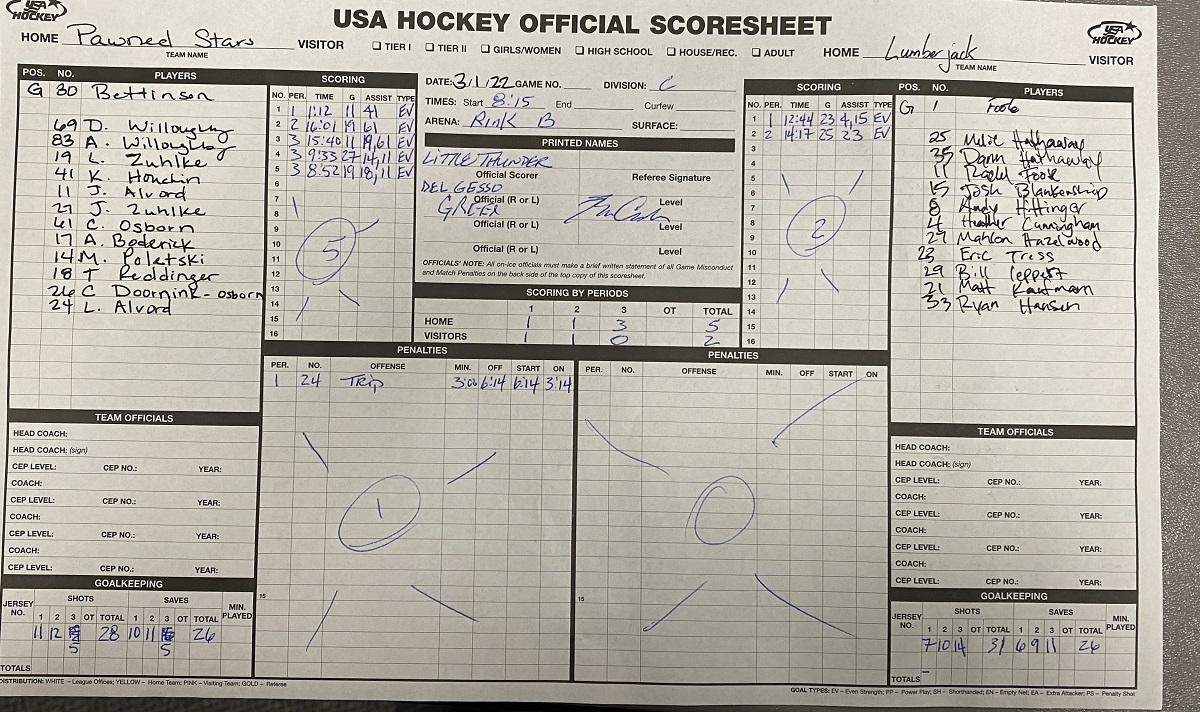 USA HOCKEY
USA HOCKEY OFFICIAL SCORESHEET
USA HOCKEY
HOME Pawned Stars VISITOR
TEAM NAME
☐ TIER I ☐ TIER II ☐ GIRLS/WOMEN ☐ HIGH SCHOOL ☐ HOUSE/REC. ☐ ADULT
HOME Lumberjack VISITOR
TEAM NAME
POS. NO. PLAYERS
G 30 Bettinson
69 D. Willoughby
83 A. Willoughby
19 L. Zuhlke
41 K. Houchin
11 J. Alvord
27 J. Zuhlke
61 C. Osborn
17 A. Boderick
14 M. Poletski
18 T Reddinger
26 C Doornink-Osborn
24 L. Alvord
SCORING
NO. PER. TIME G ASSIST TYPE
1 1 1:12 11 41 EV
2 2 16:01 19 61 EV
3 3 15:40 11 19,61 EV
4 3 9:33 27 14,11 EV
5 3 8:52 19 18,11 EV
6
7
8
9
10
11
12
13
14
15
16
5
DATE: 3/1/22 GAME NO. DIVISION: C
TIMES: Start 8:15 End Curfew
ARENA: Rink B SURFACE:
PRINTED NAMES
LITTLE THUNDER
Official Scorer Referee Signature
DEL GESSO
Official (R or L) Level
GREER
Official (R or L) Level
Official (R or L) Level
OFFICIALS' NOTE: All on-ice officials must make a brief written statement of all Game Misconduct
and Match Penalties on the back side of the top copy of this scoresheet.
SCORING BY PERIODS
1 2 3 OT TOTAL
HOME 1 1 3 5
VISITORS 1 1 0 2
SCORING
NO. PER. TIME G ASSIST TYPE
1 1 12:44 23 4,15 EV
2 2 14:17 25 23 EV
3
4
5
6
7
8
9
10
11
12
13
14
15
16
2
POS. NO. PLAYERS
G 1 Foote
25 Mike Hathaway
35 Dann Hathaway
11 Foote
15 Josh Blankenship
8 Andy Hittinger
4 Heather Cunningham
27 Mahlon Hazelwood
23 Eric Tress
29 Bill Leppert
21 Matt Kaufmann
33 Ryan Hansen
PENALTIES
PER. NO. OFFENSE MIN. OFF START ON
1 24 TRIP 3:00 6:14 6:14 3:14
15
1
PENALTIES
PER. NO. OFFENSE MIN. OFF START ON
15
0
TEAM OFFICIALS
HEAD COACH:
HEAD COACH: (sign)
CEP LEVEL: CEP NO.: YEAR:
COACH:
CEP LEVEL: CEP NO.: YEAR:
COACH:
CEP LEVEL: CEP NO.: YEAR:
COACH:
CEP LEVEL: CEP NO.: YEAR:
GOALKEEPING
JERSEY NO. SHOTS SAVES MIN. PLAYED
1 2 3 OT TOTAL 1 2 3 OT TOTAL
11 12 5 28 10 11 5 26
TOTALS
TEAM OFFICIALS
HEAD COACH:
HEAD COACH: (sign)
CEP LEVEL: CEP NO.: YEAR:
COACH:
CEP LEVEL: CEP NO.: YEAR:
COACH:
CEP LEVEL: CEP NO.: YEAR:
COACH:
CEP LEVEL: CEP NO.: YEAR:
GOALKEEPING
JERSEY NO. SHOTS SAVES MIN. PLAYED
1 2 3 OT TOTAL 1 2 3 OT TOTAL
7 10 14 31 6 9 11 26
TOTALS
DISTRIBUTION: WHITE – League Offices; YELLOW – Home Team; PINK – Visiting Team; GOLD – Referee
GOAL TYPES: EV – Even Strength; PP – Power Play; SH – Shorthanded; EN – Empty Net; EA – Extra Attacker; PS – Penalty Shot